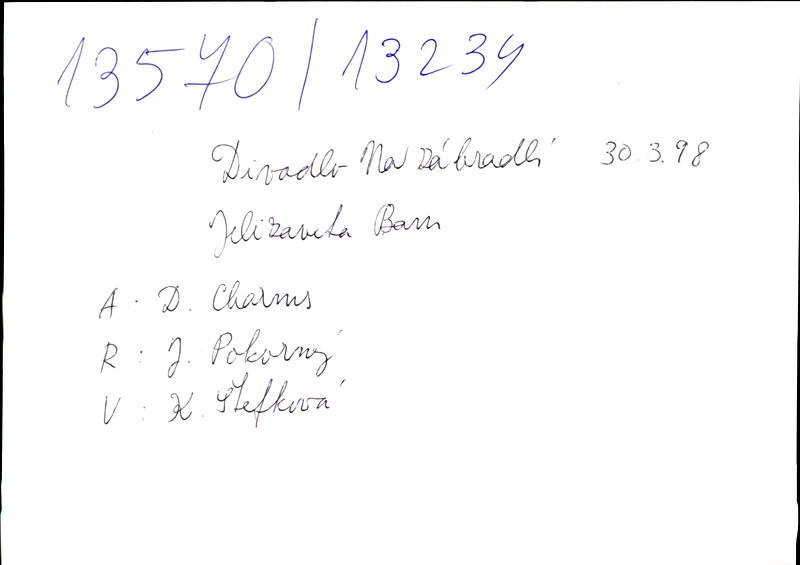 13570/13234
Divadlo Na zábradlí 30.3.98
Jelizaveta Bam
A: D. Charms
R: J. Pokorný
V: K. Štefková